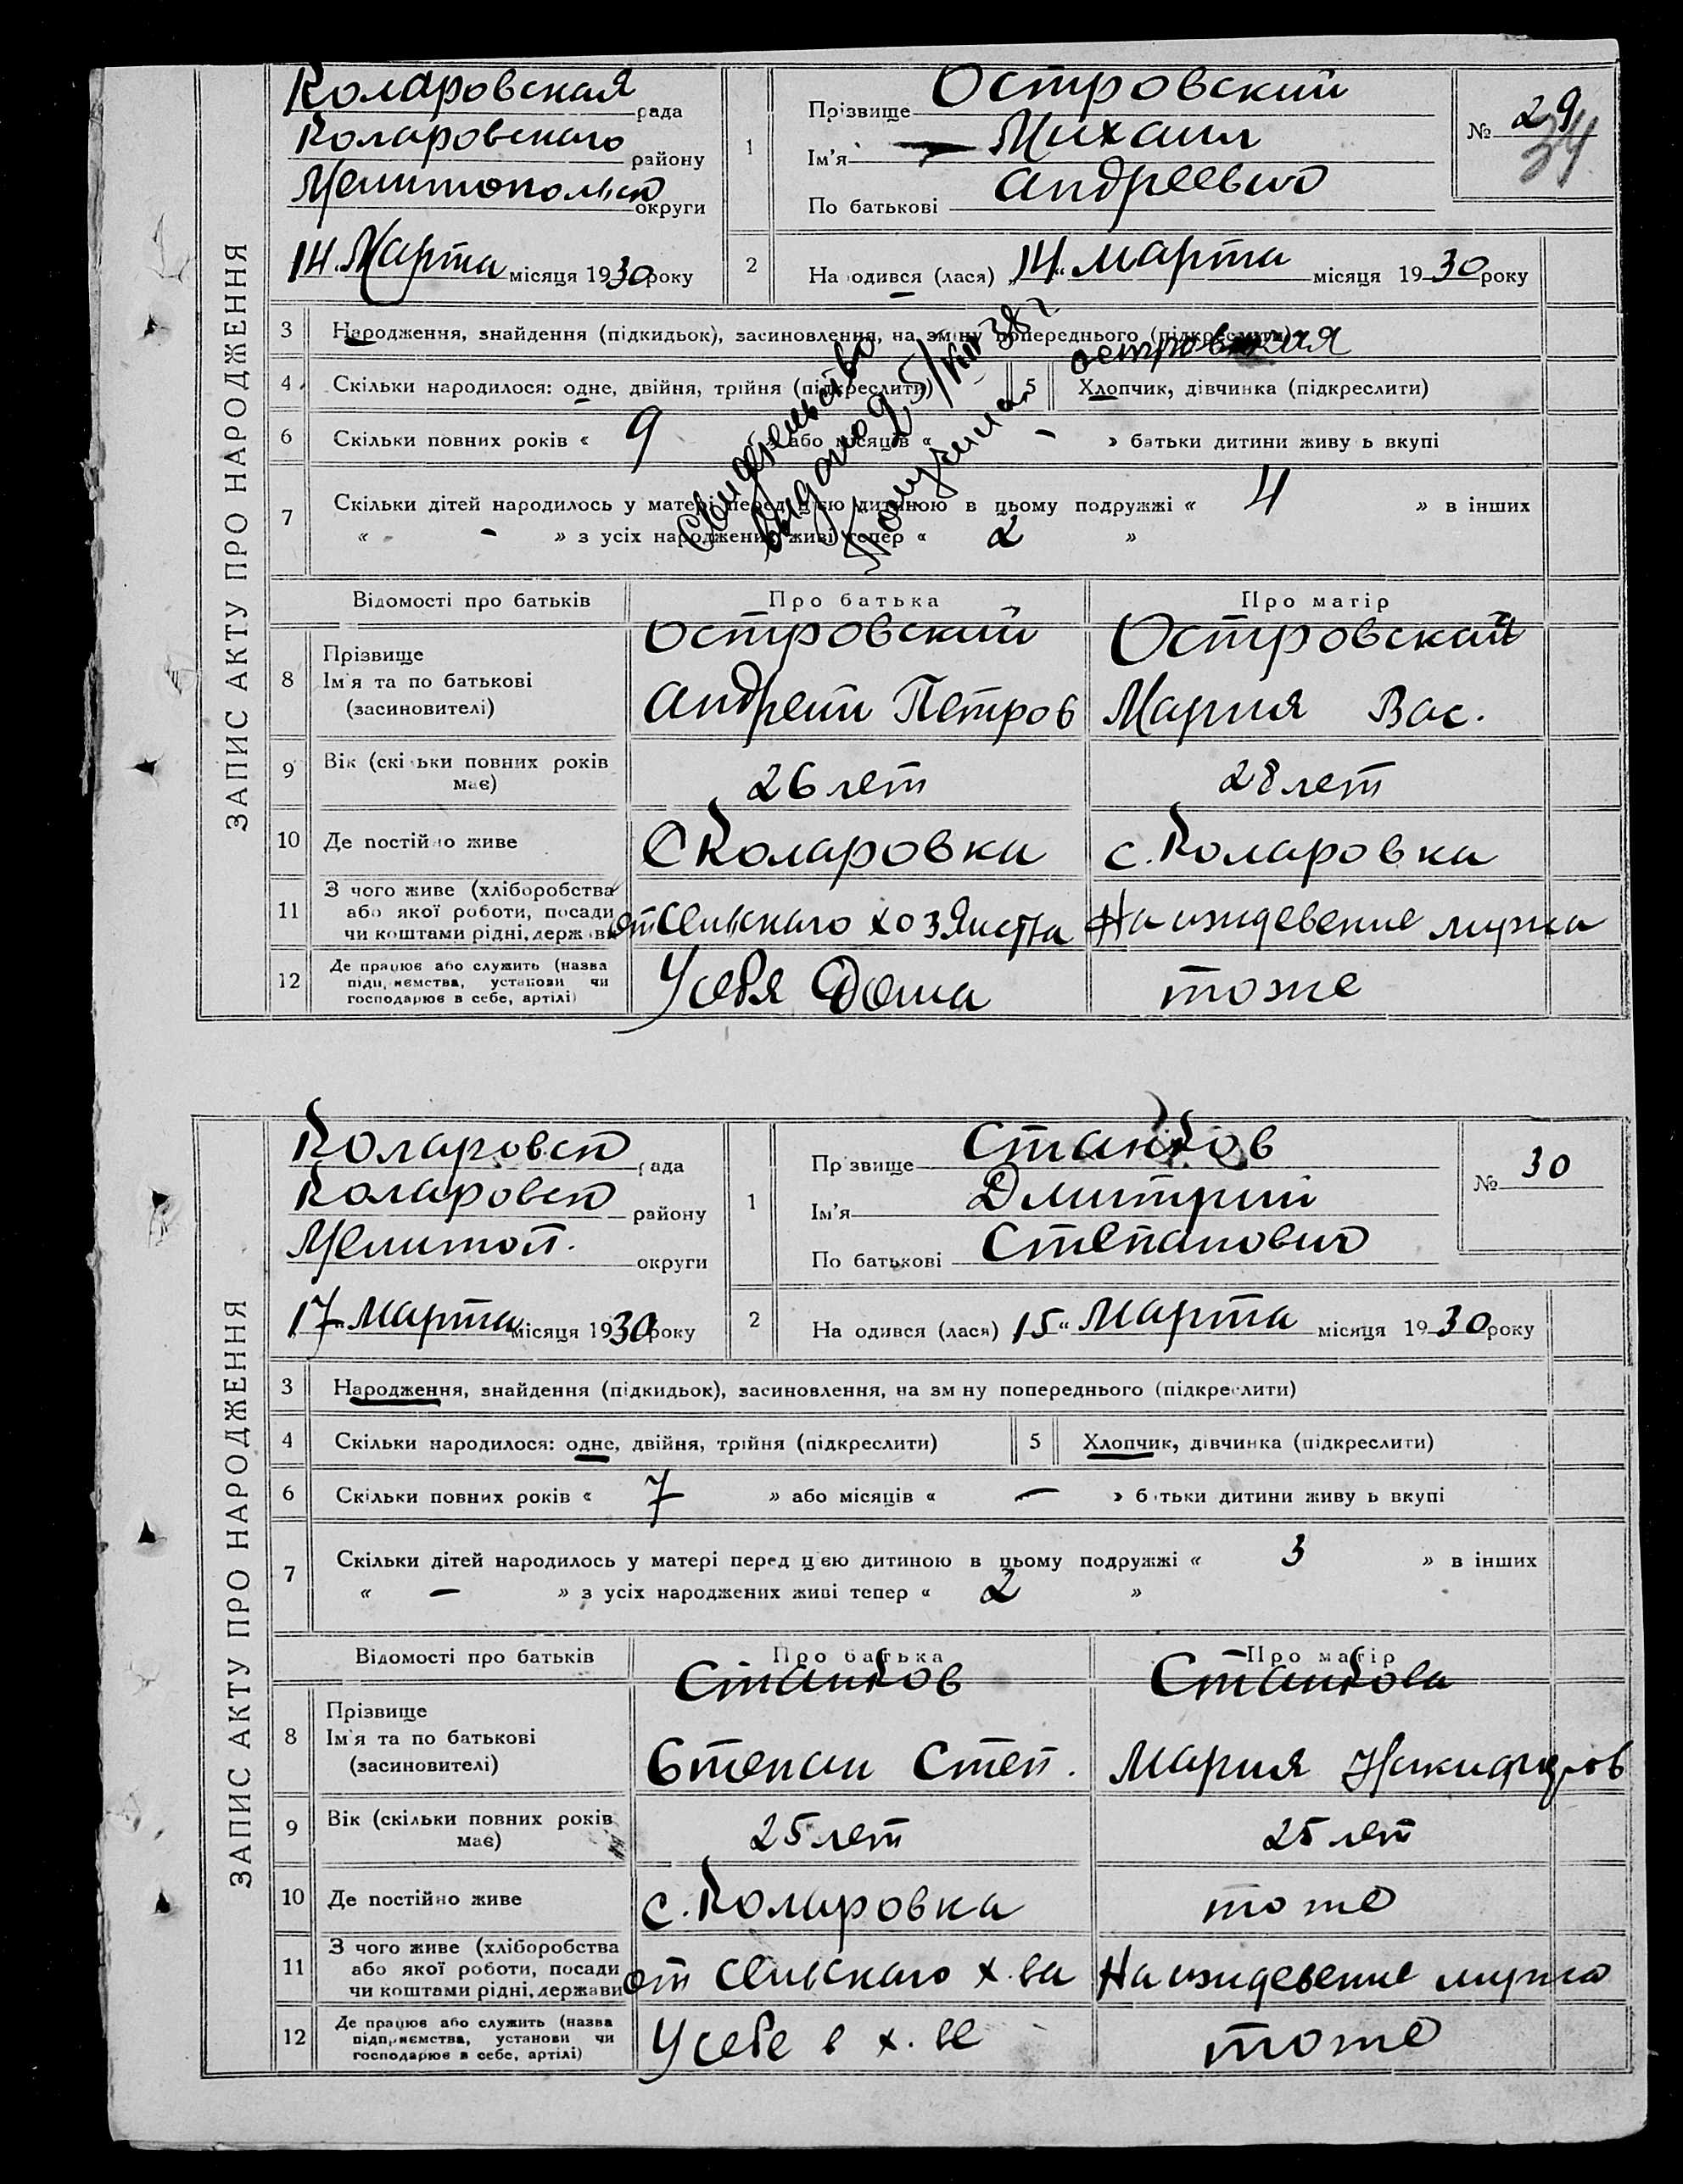 ЗАПИС АКТУ ПРО НАРОДЖЕННЯ
Коларовская рада
Коларовского району
округи
14 Марта місяця 1930 року
1
Прізвище Островский
Ім'я Михаил
По батькові Андреевич
№ 29
34
2
На одився (лася) „14“ марта місяця 1930 року
3 Народження, знайдення (підкидьок), засиновлення, на зміну попереднього (підкреслити)
4 Скільки народилося: одне, двійня, трійня (підкреслити)
5 Хлопчик, дівчинка (підкреслити)
6 Скільки повних років « 9 » або місяців « - » батьки дитини живу ь вкупі
7 Скільки дітей народилось у матері перед цією дитиною в цьому подружжі « 4 » в інших
« - » з усіх народжених живі тепер « 2 »
Свидетельство
выдано 25/XII 38 г
Получила островская
Відомості про батьків
Про батька
Про матір
8 Прізвище
Ім'я та по батькові
(засиновителі)
Островский
Андреи Петров
Островская
Мария Вас.
9 Вік (скі ьки повних років
має)
26 лет
28 лет
10 Де постійно живе
С Коларовка
с. Коларовка
11 З чого живе (хліборобства
або якої роботи, посади
чи коштами рідні, держави
от Сельского хозяиства
На иждевение мужа
12 Де працює або служить (назва
підприємства, установи чи
господарює в себе, артілі)
У себя Дома
тоже
ЗАПИС АКТУ ПРО НАРОДЖЕННЯ
рада
району
Мелитоп. округи
17 марта місяця 1930 року
1
Пр звище Станков
Ім'я Дмитрий
По батькові Степанович
№ 30
2
На одився (лася) 15“ Марта місяця 1930 року
3 Народження, знайдення (підкидьок), засиновлення, на зм ну попереднього (підкреслити)
4 Скільки народилося: одне, двійня, трійня (підкреслити)
5 Хлопчик, дівчинка (підкреслити)
6 Скільки повних років « 7 » або місяців « — » б тьки дитини живу ь вкупі
7 Скільки дітей народилось у матері перед цією дитиною в цьому подружжі « 3 » в інших
« — » з усіх народжених живі тепер « 2 »
Відомості про батьків
Про батька
Про матір
8 Прізвище
Ім'я та по батькові
(засиновителі)
Станков
Степан Степ.
Станкова
Мария Никифоров
9 Вік (скільки повних років
має)
25 лет
25 лет
10 Де постійно живе
с. Коларовка
тоже
11 З чого живе (хліборобства
або якої роботи, посади
чи коштами рідні, держави
от Сельского х. ва
На иждевение мужа
12 Де працює або служить (назва
підприємства, установи чи
господарює в себе, артілі)
У себе в х. ве
тоже